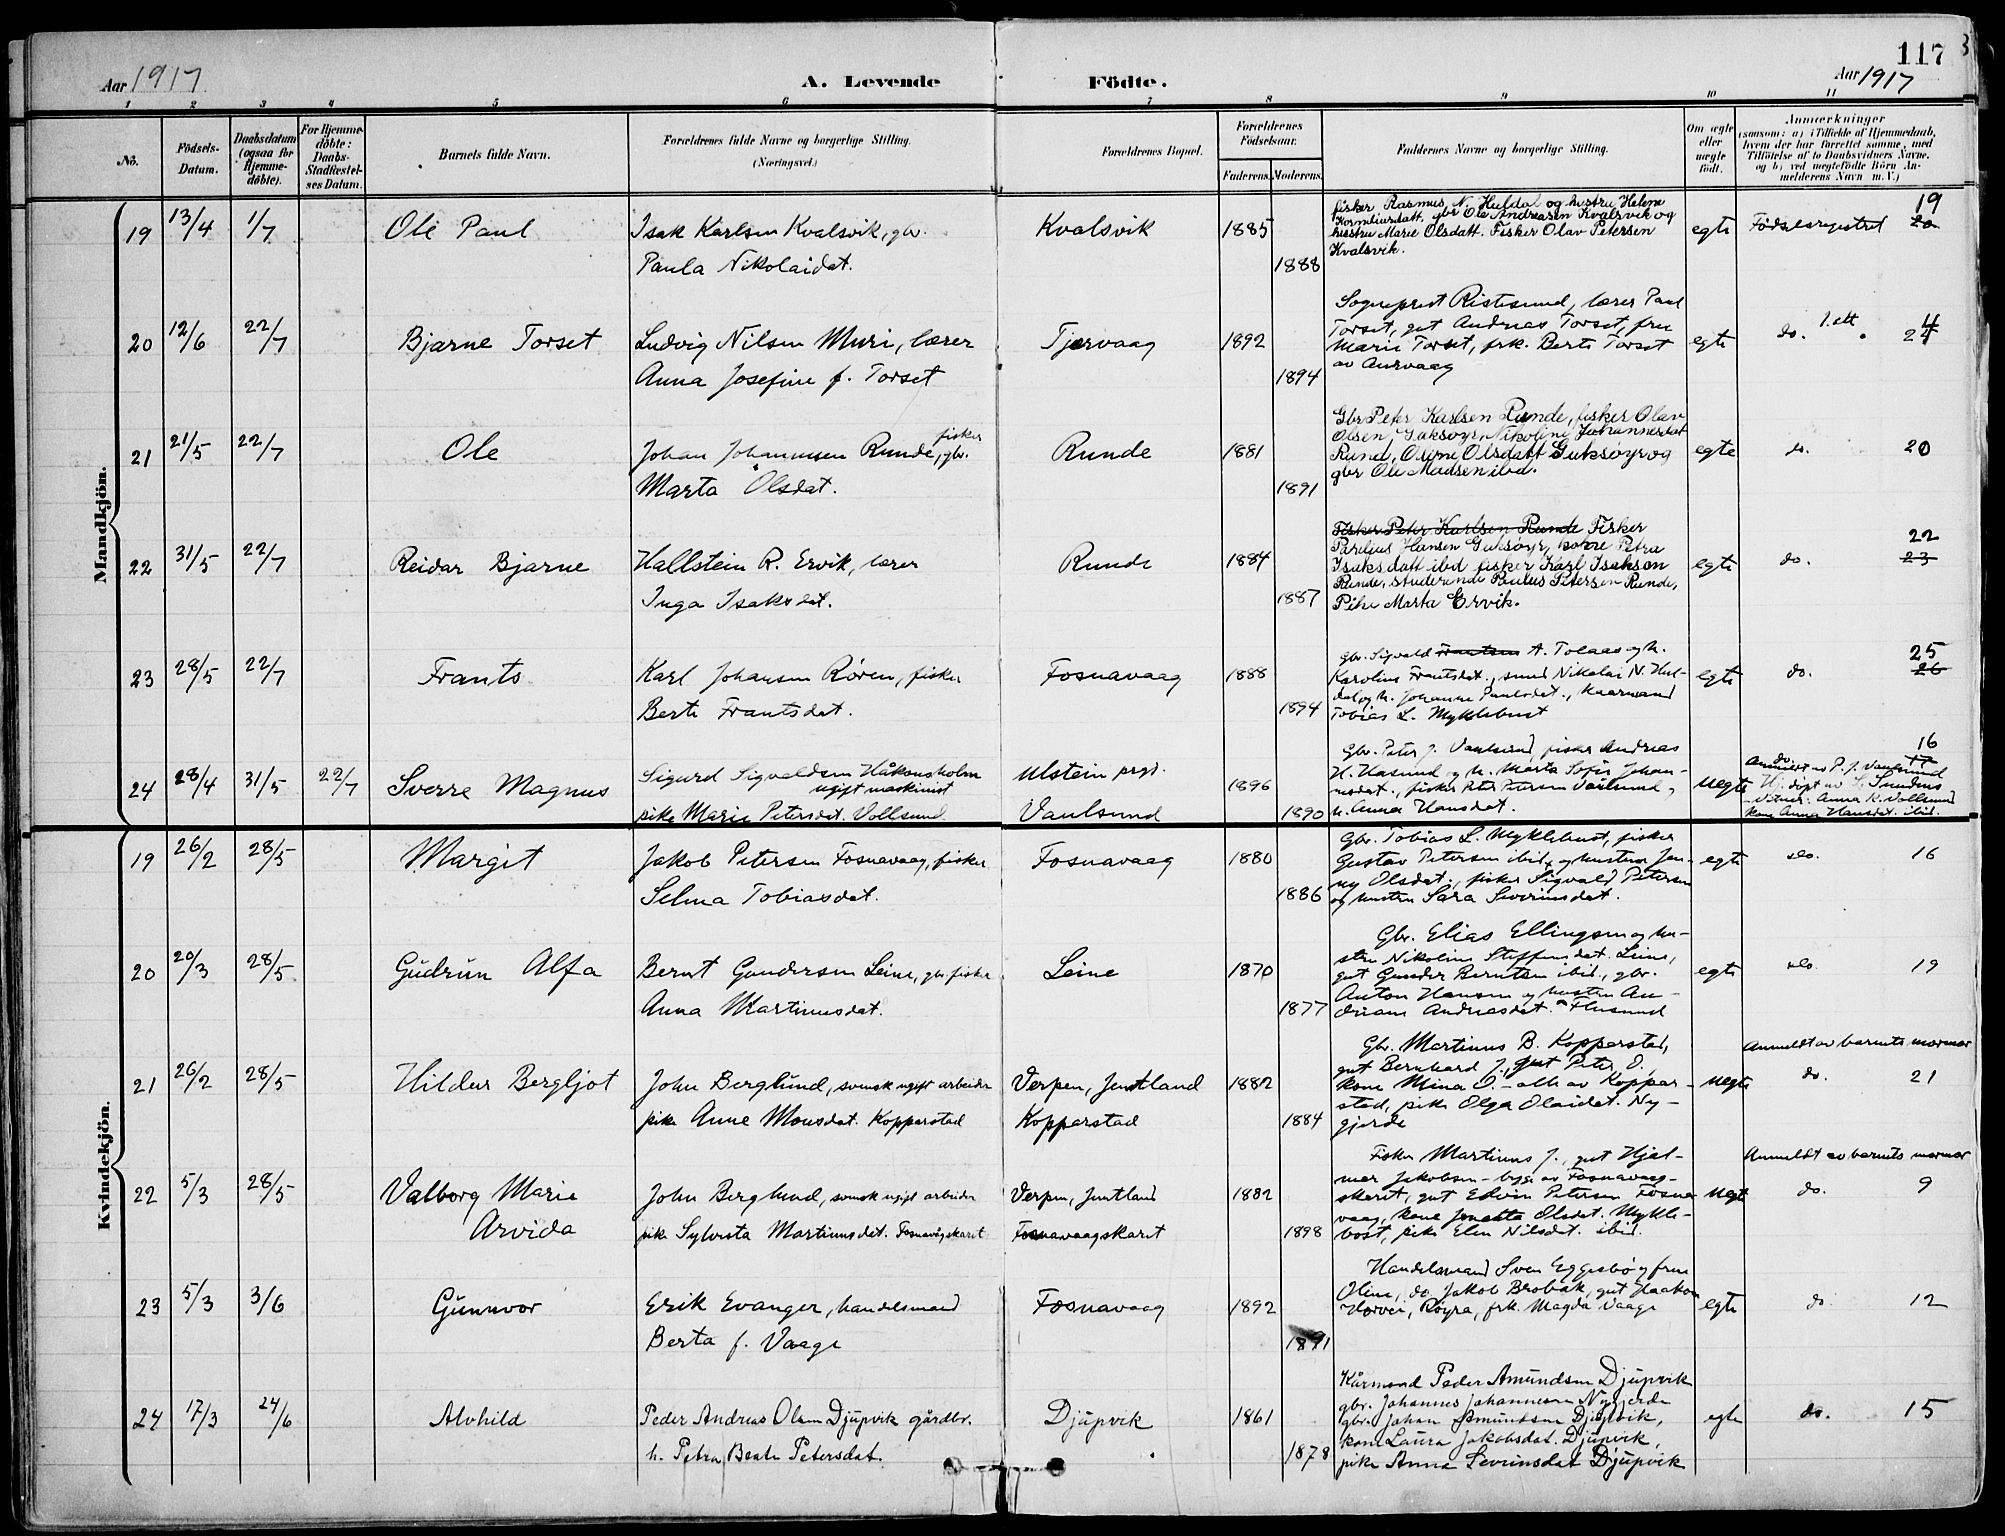 Aar 1917
A. Levende Födte.
117
Aar 1917
1 2 3 4 5 6 7 8 9 10 11
No.
Födsels-Datum.
Daabsdatum (ogsaa for Hjemme-döbte).
For Hjemme-döbte: Daabs-Stadfæstel-ses Datum.
Barnets fulde Navn.
Forældrenes fulde Navne og borgerlige Stilling.
(Næringsvei.)
Forældrenes Bopæl.
Forældrenes Födselsaar.
Faderens. Moderens.
Faddernes Navne og borgerlige Stilling.
Om ægte eller uægte födt.
Anmærkninger
(saasom: a) i Tilfælde af Hjemmedaab,
hvem der har forrettet samme, med
Tilföielse af to Daabsvidners Navne,
og b) ved uegtefödte Börn An-
melderens Navn m. V.)
Mandkjön.
19 13/4 1/7 Ole Paul
Isak Karlsen Kvalsvik, gbr.
Paula Nikolaidat.
Kvalsvik 1885 1888
fisker Rasmus N. Huldal og hustru Helene
gbr Ole Andreasen Kvalsvik og
hustru Marie Olsdatt. Fisker Olav Petersen
Kvalsvik.
egte Fødselsregistret 20 19
20 12/6 22/7 Bjarne Torset
Ludvig Nilsen Muri, lærer
Anna Josefine f. Torset
Tjørvaag 1892 1894
Sogneprest Ristesund, lærer Paul
Torset, gut Andreas Torset, fru
Marie Torset, frk. Berte Torset
av Aurvaag
egte do. 24
21 21/5 22/7 Ole
Johan Johannesen Runde, fisker, gbr.
Marta Olsdat.
Runde 1881 1891
Gbr Peter Karlsen Runde, fisker Olav
Olsen Goksøyr, Nikoline Johannesdat
Rund, Osine Olsdatt Goksøyr og
gbr Ole Madsen ibd.
egte do. 20
22 31/5 22/7 Reidar Bjarne
Hallstein R. Ervik, lærer
Inga Isaksdat.
Runde 1884 1887
Fisker Peter Karlsen Runde Fisker
Pareljus Hansen Goksøyr, kone Petra
Isaksdatt ibd fisker Karl Isaksen
Runde, studerende Paulus Petersen Runde,
Pike Marta Ervik.
egte do. 22 23
23 28/5 22/7 Frants
Karl Johansen Røren, fisker
Berte Frantsdat.
Fosnavaag 1888 1894
Gbr. Sigvald A. Tolaas og h.
Karoline Frantsdat., smed Nikolai N. Hul-
dal og h. Johanne Paulsdat., kaarmand
Tobias L. Myklebust
egte do. 25 26
24 28/4 31/5 22/7 Sverre Magnus
Sigurd Sigvaldsen Håkonsholm
ugift maskinist
pike Marie Petersdat. Vollsund
Ulstein prgj.
Vaulsund 1896 1890
Gbr. Peter J. Vaulsund, fisker Andreas
H. Hasund og h. Marta Sofie Johan-
nesdat., fisker Peter Petersen Vaulsund,
h. Anna Hansdat.
uegte do. 16
Anmeldt av P. J. Vaulsund
Hj. døpt av
Vitner: Anna K. Vollsund
kone Anna Hansdat. ibid.
Kvindekjön.
19 26/2 28/5 Margit
Jakob Petersen Fosnavaag, fisker
Selma Tobiasdat.
Fosnavaag 1880 1886
Gbr. Tobias L. Myklebust, fisker
Gustav Petersen ibid. og hustru Jen-
ny Olsdat., fisker Sigvald Petersen
og hustru Sara Severinsdat.
egte do. 16
20 20/3 28/5 Gudrun Alfa
Bernt Gundersen Leine, gbr. fisker
Anna Martinusdat.
Leine 1870 1877
Gbr. Elias Ellingsen og hu-
stru Nikoline Steffensdat. Leine,
gut Gunder Berntsen ibid., gbr.
Anton Hansen og hustru An-
driane Andreasdat. Flusund
egte do. 19
21 26/2 28/5 Hildur Bergljot
John Berglund, svensk ugift arbeider
pike Anne Monsdat. Kopperstad
Verpen, Jemtland
Kopperstad 1882 1884
Gbr. Martinus B. Kopperstad,
gut Bernhard J., gut Peter O.,
kone Mina O. - alle av Koppar-
stad, pike Olga Olaidat. Ny-
gjerde
uegte Anmeldt av barnets mormor
do. 21
22 5/3 28/5 Valborg Marie
Arvida
John Berglund, svensk ugift arbeider
pike Sylvista Martinusdat. Fosnavågskaret
Verpen, Jemtland
Fosnavaagskaret 1882 1898
Fisker Martinus J., gut Hjal-
mar Jakobsen - begge av Fosnavaag-
skaret, gut Edvin Petersen Fosna-
vaag, kone Jenetta Olsdat. Mykle-
bost, pike Elen Nilsdat. ibid.
uegte Anmeldt av barnets mormor
do. 9
23 5/3 3/6 Gunnvor
Erik Evanger, handelsmand
Berta f. Vaage
Fosnavaag 1892 1891
Handelsmand Sven Eggesbø og frue
Oline, do. Jakob Brobak, gut Haakon
Horvei, Røyra, frk. Magda Vaage
egte do. 12
24 17/3 24/6 Alvhild
Peder Andreas Olsen Djupvik gårdbr.
h. Petra Beate Petersdat.
Djupvik 1861 1878
Kårmand Peder Amundsen Djupvik
gbr. Johannes Johannesen Nygjerde
gbr. Johan Amundsen Djupvik,
kone Laura Jakobsdat. Djupvik,
pike Anna Sevrinsdat Djupvik
egte do. 15